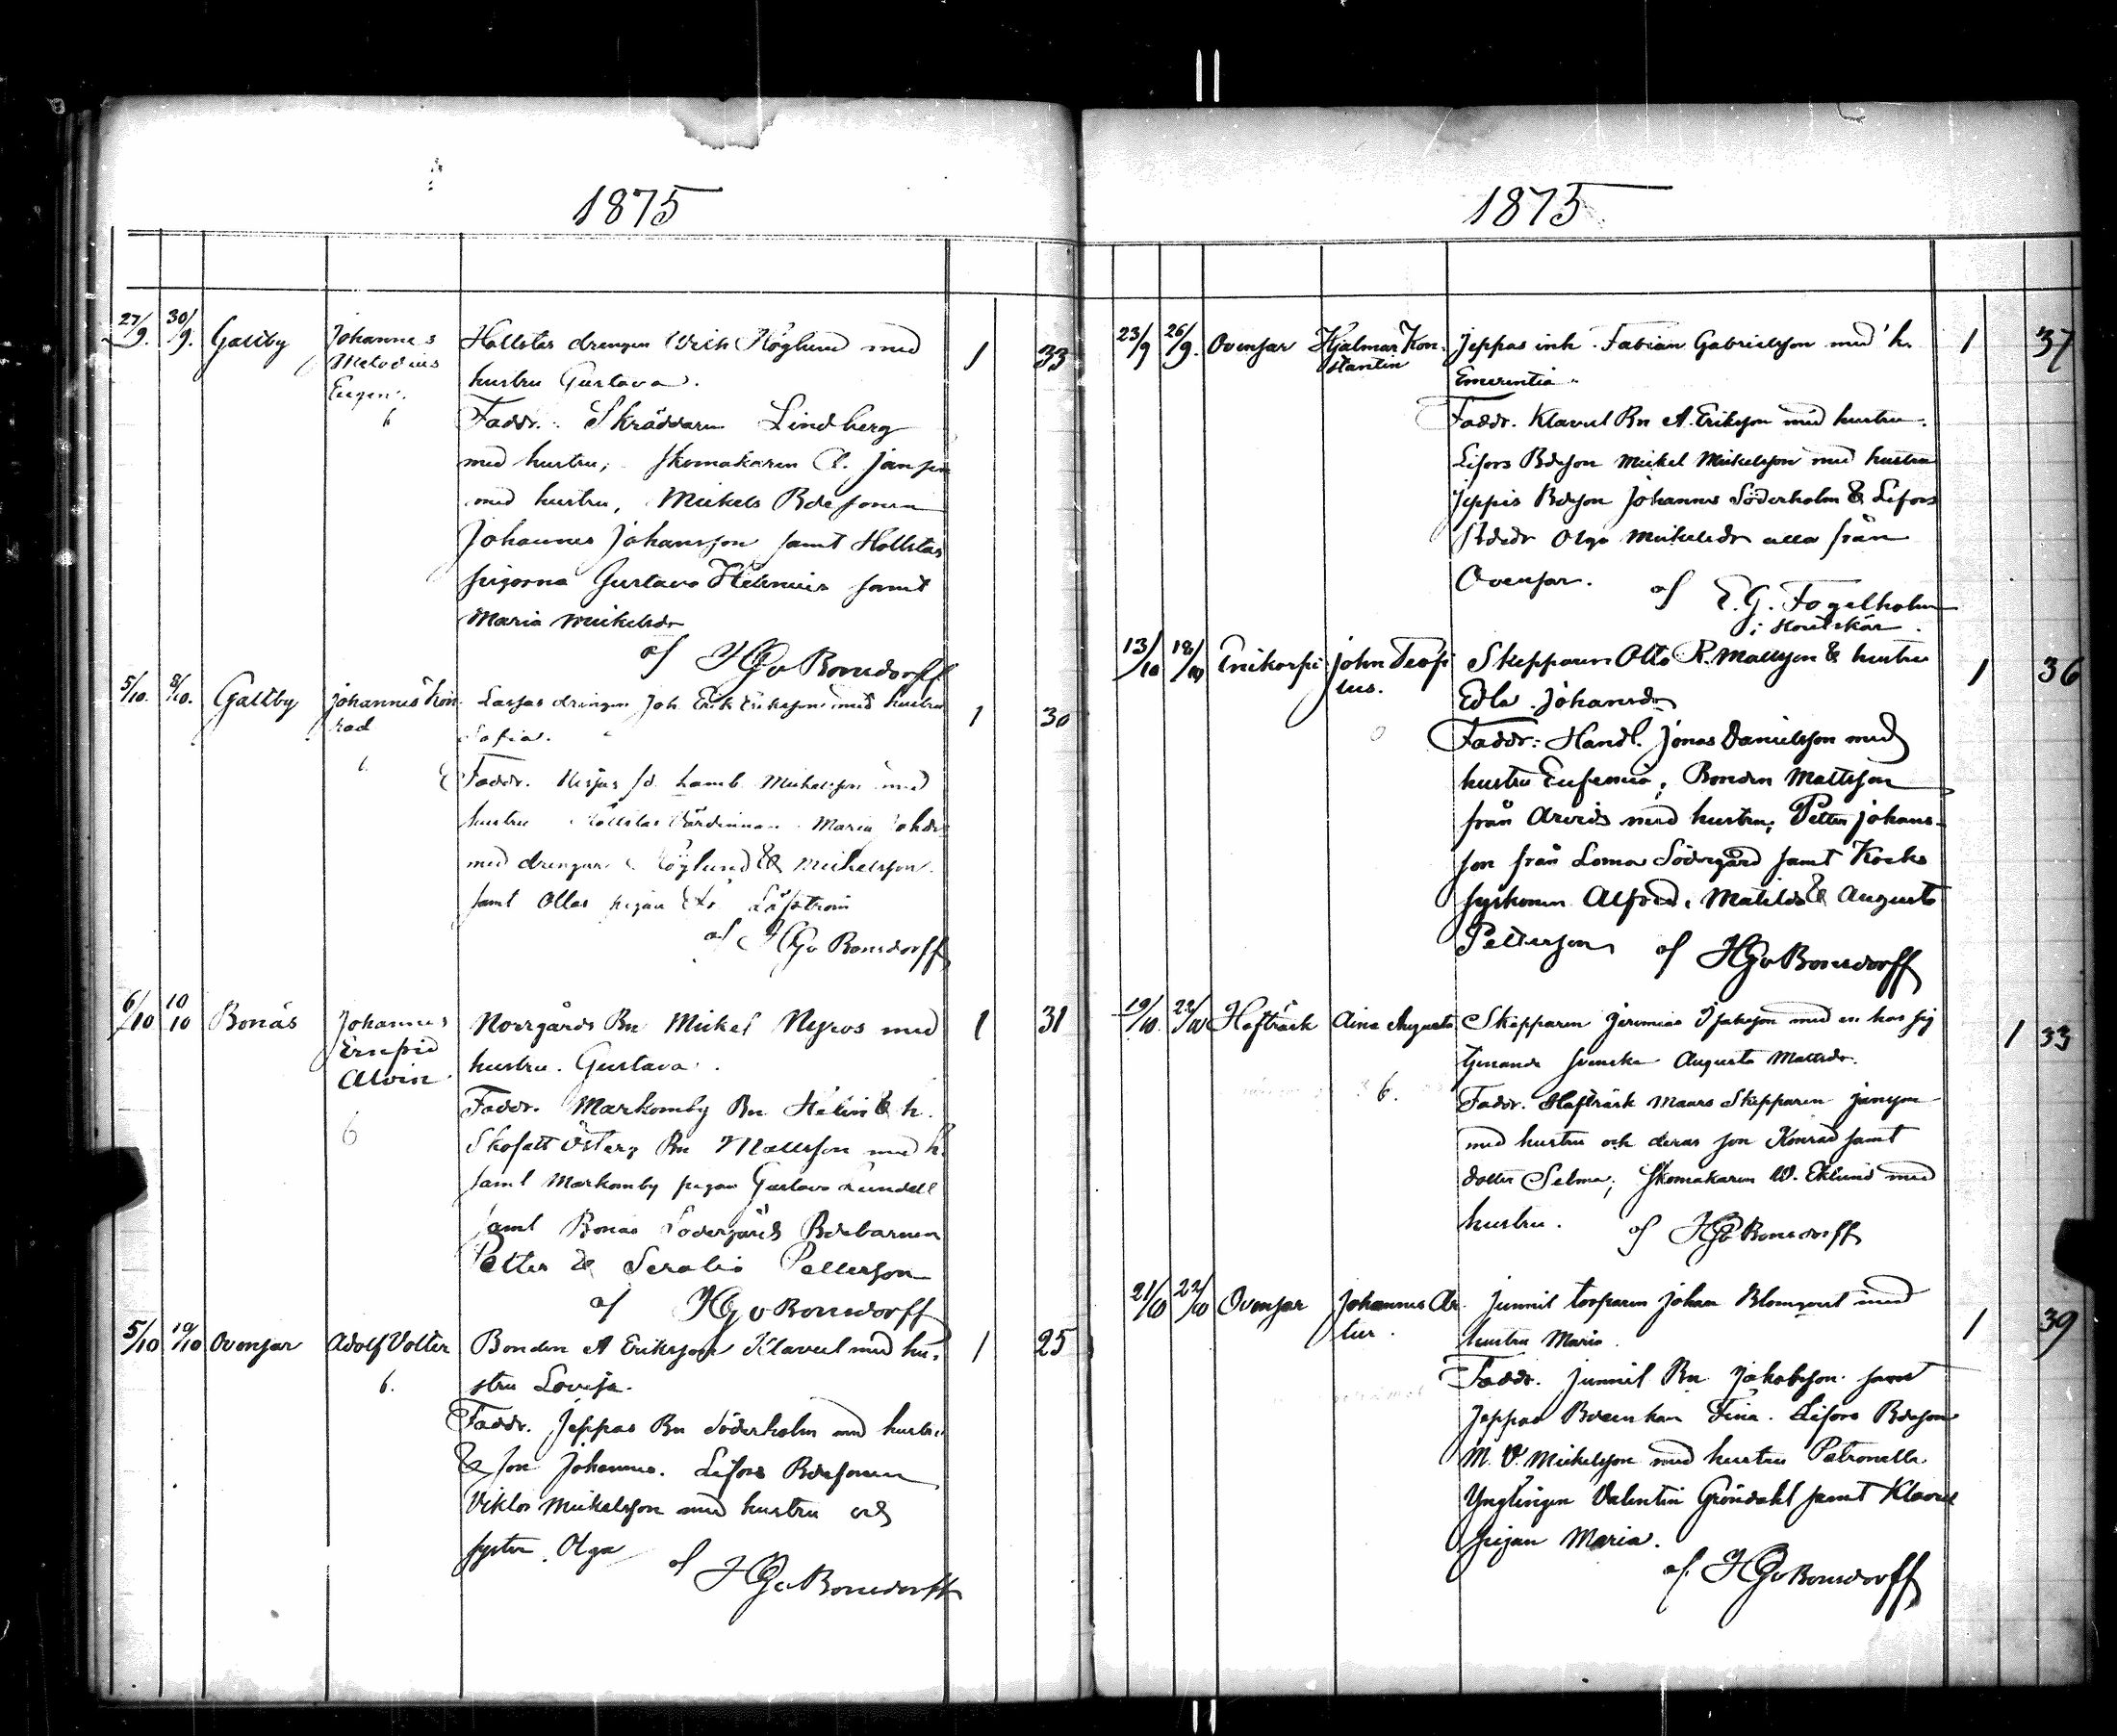 1875
27/9. 30/9. Galtby Johannes Hollstas drengen Höglund med 1 33
Melodius hustru Gustava.
Eugen.
6 Faddr. Skräddaren Lindberg
med hustru; skomakaren Jansson
med hustru, Mickels Bdesonen
Johannes Johansson samt Hollstas
pigorna Gustava Helenius samt
Maria Mickelsdr
af HGvBonsdorff
5/10. 8/10. Galtby Johannes Kon Larsas drengen Joh. Erik Eriksson med hustru 1 30
rad Sofia.
6. Faddr. Lamb. Mickelsson med
hustru Maria
med drengar Höglund & Mickelsson
samt Ollas pigan Löfström
af HGvBonsdorff
6/10 10/10 Bonäs Johannes Norrgårds Bn Mickel Nyroos med 1 31
Ernfrid hustru. Gustava.
Alvin
6 Faddr. Markomby Bn Helin & h.
Österg Bn Mattsson med h.
samt Markomby pigan Gustava Lundell
samt Bonäs Södergårds Bdebarnen
Petter & Serafia Petterson
af HGvBonsdorff
5/10 10/10 Ovensor Adolf Volter Bonden A Eriksson Klavul med hu- 1 25
6. stru Lovisa.
Faddr. Jeppas Bn Söderholm med hustru
& son Johannes. Lifors Bdesonen
Viktor Mickelsson med hustru och
syster Olga
af HGvBonsdorff
1875
23/9 26/9. Ovensor Hjalmar Kon- Jeppas inh. Fabian Gabrielsson med h. 1 37
stantin Emerentia.
Faddr. Klavul Bn A. Eriksson med hustru.
Lifors Bdeson Mickel Mickelsson med hustru
Jeppis Bdeson Johannes Söderholm & Lifors
Bdedr Olga Mickelsdr alla från
Ovensor. af E. G. Fogelholm
i Houtskär.
13/10 18/10 John Teofi Skepparen Otto R. Mattsson & hustru 1 36
lus. Edla Johansdr
Faddr: Handl. Jonas Danielsson med
hustru Eufemia; Bonden Mattsson
från Arvids med hustru; Petter Johans-
son från Loma Södergård samt Kocks
syskonen Alfred, Matilda & Augusta
Petterson af HGvBonsdorff
19/10. 22/10 Hafträsk Aina Augusta Skepparen Jeremias Isaksson med en hos sig 1 33
6. tjenande svenska Augusta Mattsdr.
Faddr. Hafträsk Maars Skepparen Jansson
med hustru och deras son Konrad samt
dotter Selma; Skomakaren W. Eklund med
hustru. af HGvBonsdorff
21/10 22/10 Ovensor Johannes Ar- Junnil torparen Johan Blomqvist med 1 39
tur. hustru Maria.
Faddr. Junnil Bn Jakobsson samt
Jeppas Bdeenkan Fina. Lifors Bdeson
M. V. Mickelsson med hustru Petronella
Ynglingen Valentin Gröndahl samt Klavul
pigan Maria.
af. HGvBonsdorff